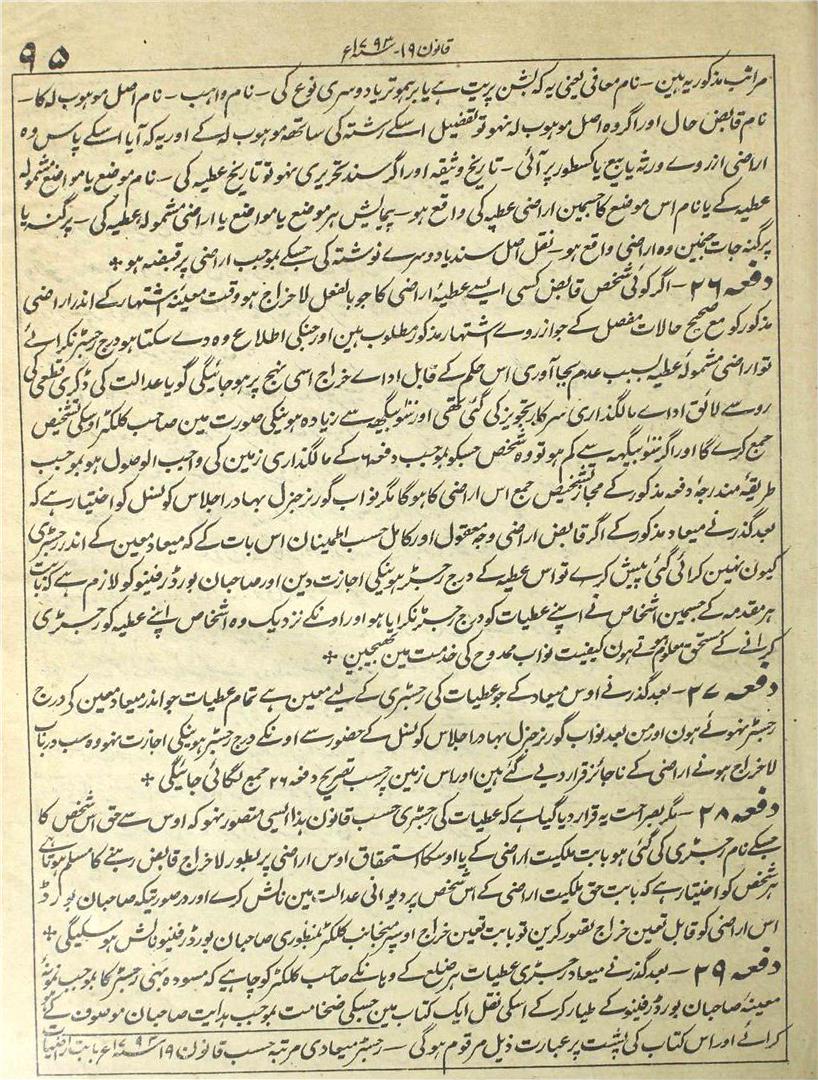 قانون ۱۹ - سنہ ۱۷۹۳ع
۹۵
مراتب مذکور یہ ہین - نام معافی یعنی یہ کہ بشن پریت ہے یا برہموتر یا دوسری نوع کی - نام واہب - نام اصل موہوب لہ کا -
نام قابض حال اور اگر وہ اصل موہوب لہ نہو تو تفصیل اسکے رشتہ کی ساتھہ موہوب لہ کے اور یہ کہ آیا اسکے پاس وہ
اراضی ازروے ورثہ یا بیع یا کسطور پر آئی - تاریخ وثیقہ اور اگر سند تحریری نہو تو تاریخ عطیہ کی - نام موضع یا مواضع مشمولہ
عطیہ کے یا نام اس موضع کا جسمین اراضی عطیہ کی واقع ہو - پیمایش ہر موضع یا مواضع یا اراضی مشمولہ عطیہ کی - پرگنہ یا
پرگنہ جات جنمین وہ اراضی واقع ہو - نقل اصل سند یا دوسرے نوشتہ کی جسکے بموجب اراضی پر قبضہ ہو *
دفعہ ۲۶ - اگر کوئی شخص قابض کسی ایسے عطیۂ اراضی کا جو بالفعل لاخراج ہو وقت معینۂ اشتہار کے اندر اراضی
مذکور کو مع صحیح حالات مفصل کے جو ازروے اشتہار مذکور مطلوب ہین اور جنکی اطلاع وہ دے سکتا ہو درج رجسٹر نکرائے
تو اراضی مشمولۂ عطیہ بسبب عدم بجا آوری اس حکم کے قابل اداے خراج اسی نہج پر ہوجائیگی گویا عدالت کی ڈگری قطعی کی
رو سے لائق اداے مالگذاری سرکار تجویز کی گئی تھی اور سَو بیگھہ سے زیادہ ہونیکی صورت مین صاحب کلکٹر اوسکی تشخیص
جمع کرے گا اور اگر سَو بیگھہ سے کم ہو تو وہ شخص جسکو بموجب دفعہ ۶ کے مالگذاری زمین کی واجب الوصول ہو بموجب
طریقۂ مندرجۂ دفعہ مذکور کے مجاز تشخیص جمع اس اراضی کا ہوگا مگر نواب گورنر جنرل بہادر اجلاس کونسل کو اختیار ہے کہ
بعد گذرنے میعاد مذکور کے اگر قابض اراضی وجہ معقول اور کامل حسب اطمینان اس بات کے کہ میعاد معین کے اندر رجسٹری
کیون نہین کرائی گئی پیش کرے تو اس عطیہ کے درج رجسٹر ہونیکی اجازت دین اور صاحبان بورڈ رفینو کو لازم ہے کہ بابت
ہر مقدمہ کے جسمین اشخاص نے اپنے عطیات کو درج رجسٹر نکرایا ہو اور اونکے نزدیک وہ اشخاص اپنے عطیہ کو رجسٹری
کرانے کے مستحق معلوم ہوتے ہون کیفیت نواب ممدوح کی خدمت مین بھیجین *
دفعہ ۲۷ - بعد گذرنے اوس میعاد کے جو عطیات کی رجسٹری کے لیے معین ہے تمام عطیات جو اندر میعاد معین کی درج
رجسٹر نہوئے ہون اور من بعد نواب گورنر جنرل بہادر اجلاس کونسل کے حضور سے اونکے درج رجسٹر ہونیکی اجازت نہو وہ سب درباب
لاخراج ہونے اراضی کے ناجائز قرار دیے گئے ہین اور اس زمین پر حسب تصریح دفعہ ۲۶ جمع لگائی جائیگی *
دفعہ ۲۸ - مگر بصراحت یہ قرار دیا گیا ہے کہ عطیات کی رجسٹری حسب قانون ہذا ایسی متصور نہو کہ اوس سے حق اس شخص کا
جسکے نام رجسٹری کی گئی ہو بابت ملکیت اراضی کے یا اوسکا استحقاق اوس اراضی پر بطور لاخراج قابض رہنے کا مسلم ہوتا ہے
ہر شخص کو اختیار ہے کہ بابت حق ملکیت اراضی کے اس شخص پر دیوانی عدالت مین نالش کرے اور درصورتیکہ صاحبان بورڈ
اس اراضی کو قابل تعین خراج تصور کرین تو بابت تعین خراج اوسپر منجانب کلکٹر بمنظوری صاحبان بورڈ رفینو نالش ہوسکیگی *
دفعہ ۲۹ - بعد گذرنے میعاد رجسٹری عطیات ہر ضلع کے وہانکے صاحب کلکٹر کو چاہیے کہ مسودہ یہی رجسٹر کا بموجب نمونۂ
معینۂ صاحبان بورڈ رفینو کے طیار کرکے اسکی نقل ایک کتاب مین جسکی ضخامت بموجب ہدایت صاحبان موصوف کے ہو
کرائے اور اس کتاب کی پشت پر عبارت ذیل مرقوم ہوگی - رجسٹر میعادی مرتبہ حسب قانون ۱۹ سنہ ۱۷۹۳ع بابت اراضیات